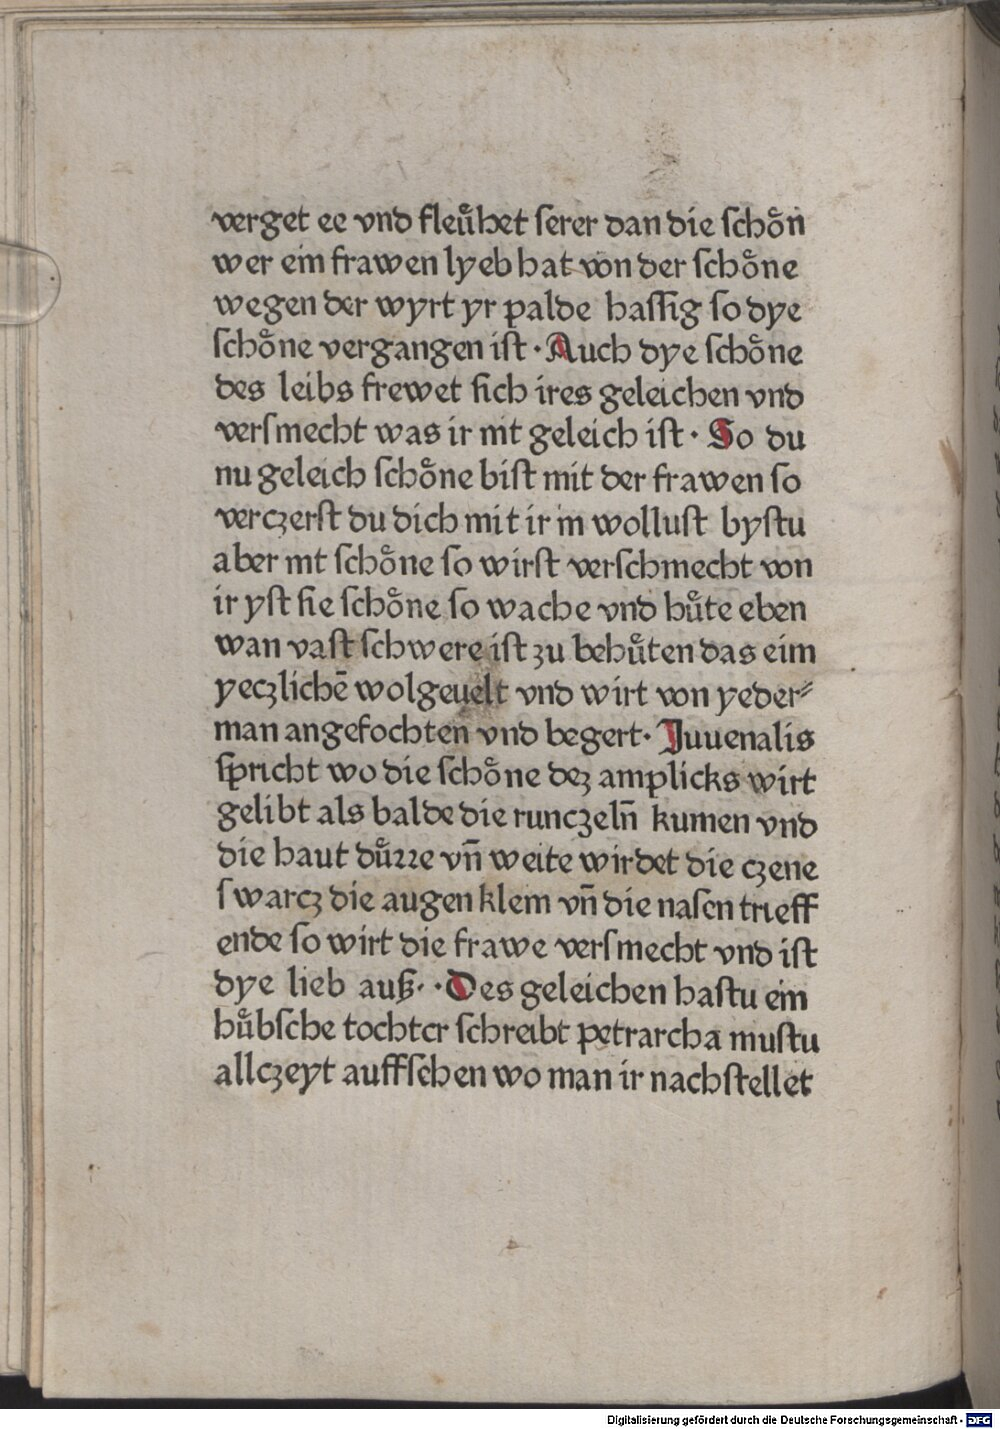 verget ee vnd fleuͤhet ſerer dan die ſchoͤn
wer ein frawen lyeb hat von der ſchoͤne
wegen der wyrt yr palde haſſig ſo dye
ſchoͤne vergangen iſt · Auch dye ſchoͤne
des leibs frewet ſich ires geleichen vnd
verſmecht was ir nit geleich iſt · So du
nu geleich ſchoͤne biſt mit der frawen ſo
verczerſt du dich mit ir in wolluſt byſtu
aber nit ſchoͤne ſo wirſt verſchmecht von
ir yſt ſie ſchoͤne ſo wache vnd huͤte eben
wan vaſt ſchwere iſt zu behuͤten das eim
yeczlichē wolgeuelt vnd wirt von yeder⸗
man angefochten vnd begert · Juuenalis
ſpricht wo die ſchoͤne dez amplicks wirt
gelibt als balde die runczeln̄ kumen vnd
die haut duͤꝛꝛe vn̄ weite wirdet die czene
ſwarcz die augen klein vn̄ die naſen trieff
ende ſo wirt die frawe verſmecht vnd iſt
dye lieb auß · · Des geleichen haſtu ein
huͤbſche tochter ſchreibt petrarcha muſtu
allczeyt auffſehen wo man ir nachſtellet
Digitalisierung gefördert durch die Deutsche Forschungsgemeinschaft - DFG